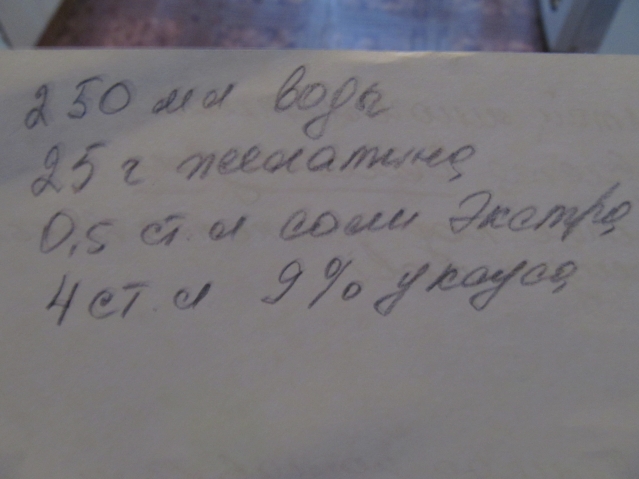 250 мл воды
25 г желатина
0,5 ст.л соли Экстра
4 ст.л 9% укауса